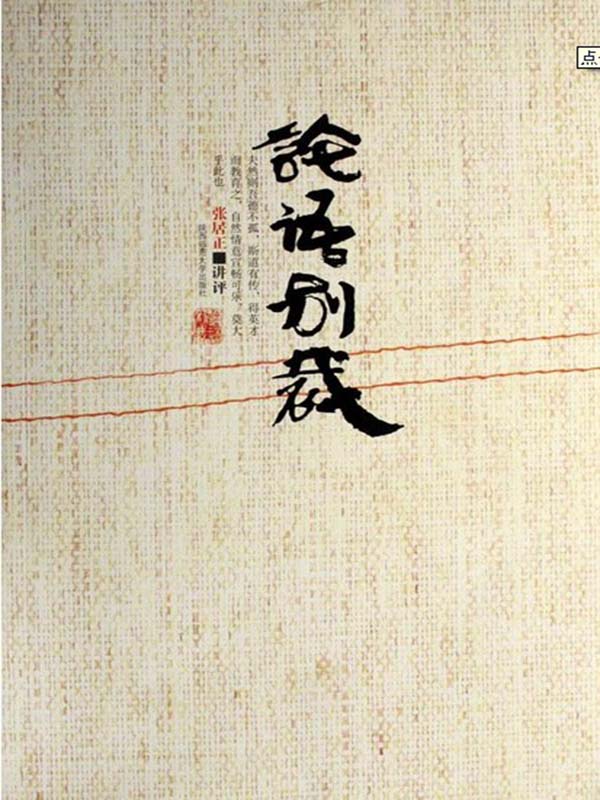 論语别裁
夫然则吾德不孤，斯道有传，得英才
而教育之，自然情意宣畅可乐，莫大
乎此也
张居正■讲评
陕西师范大学出版社
点